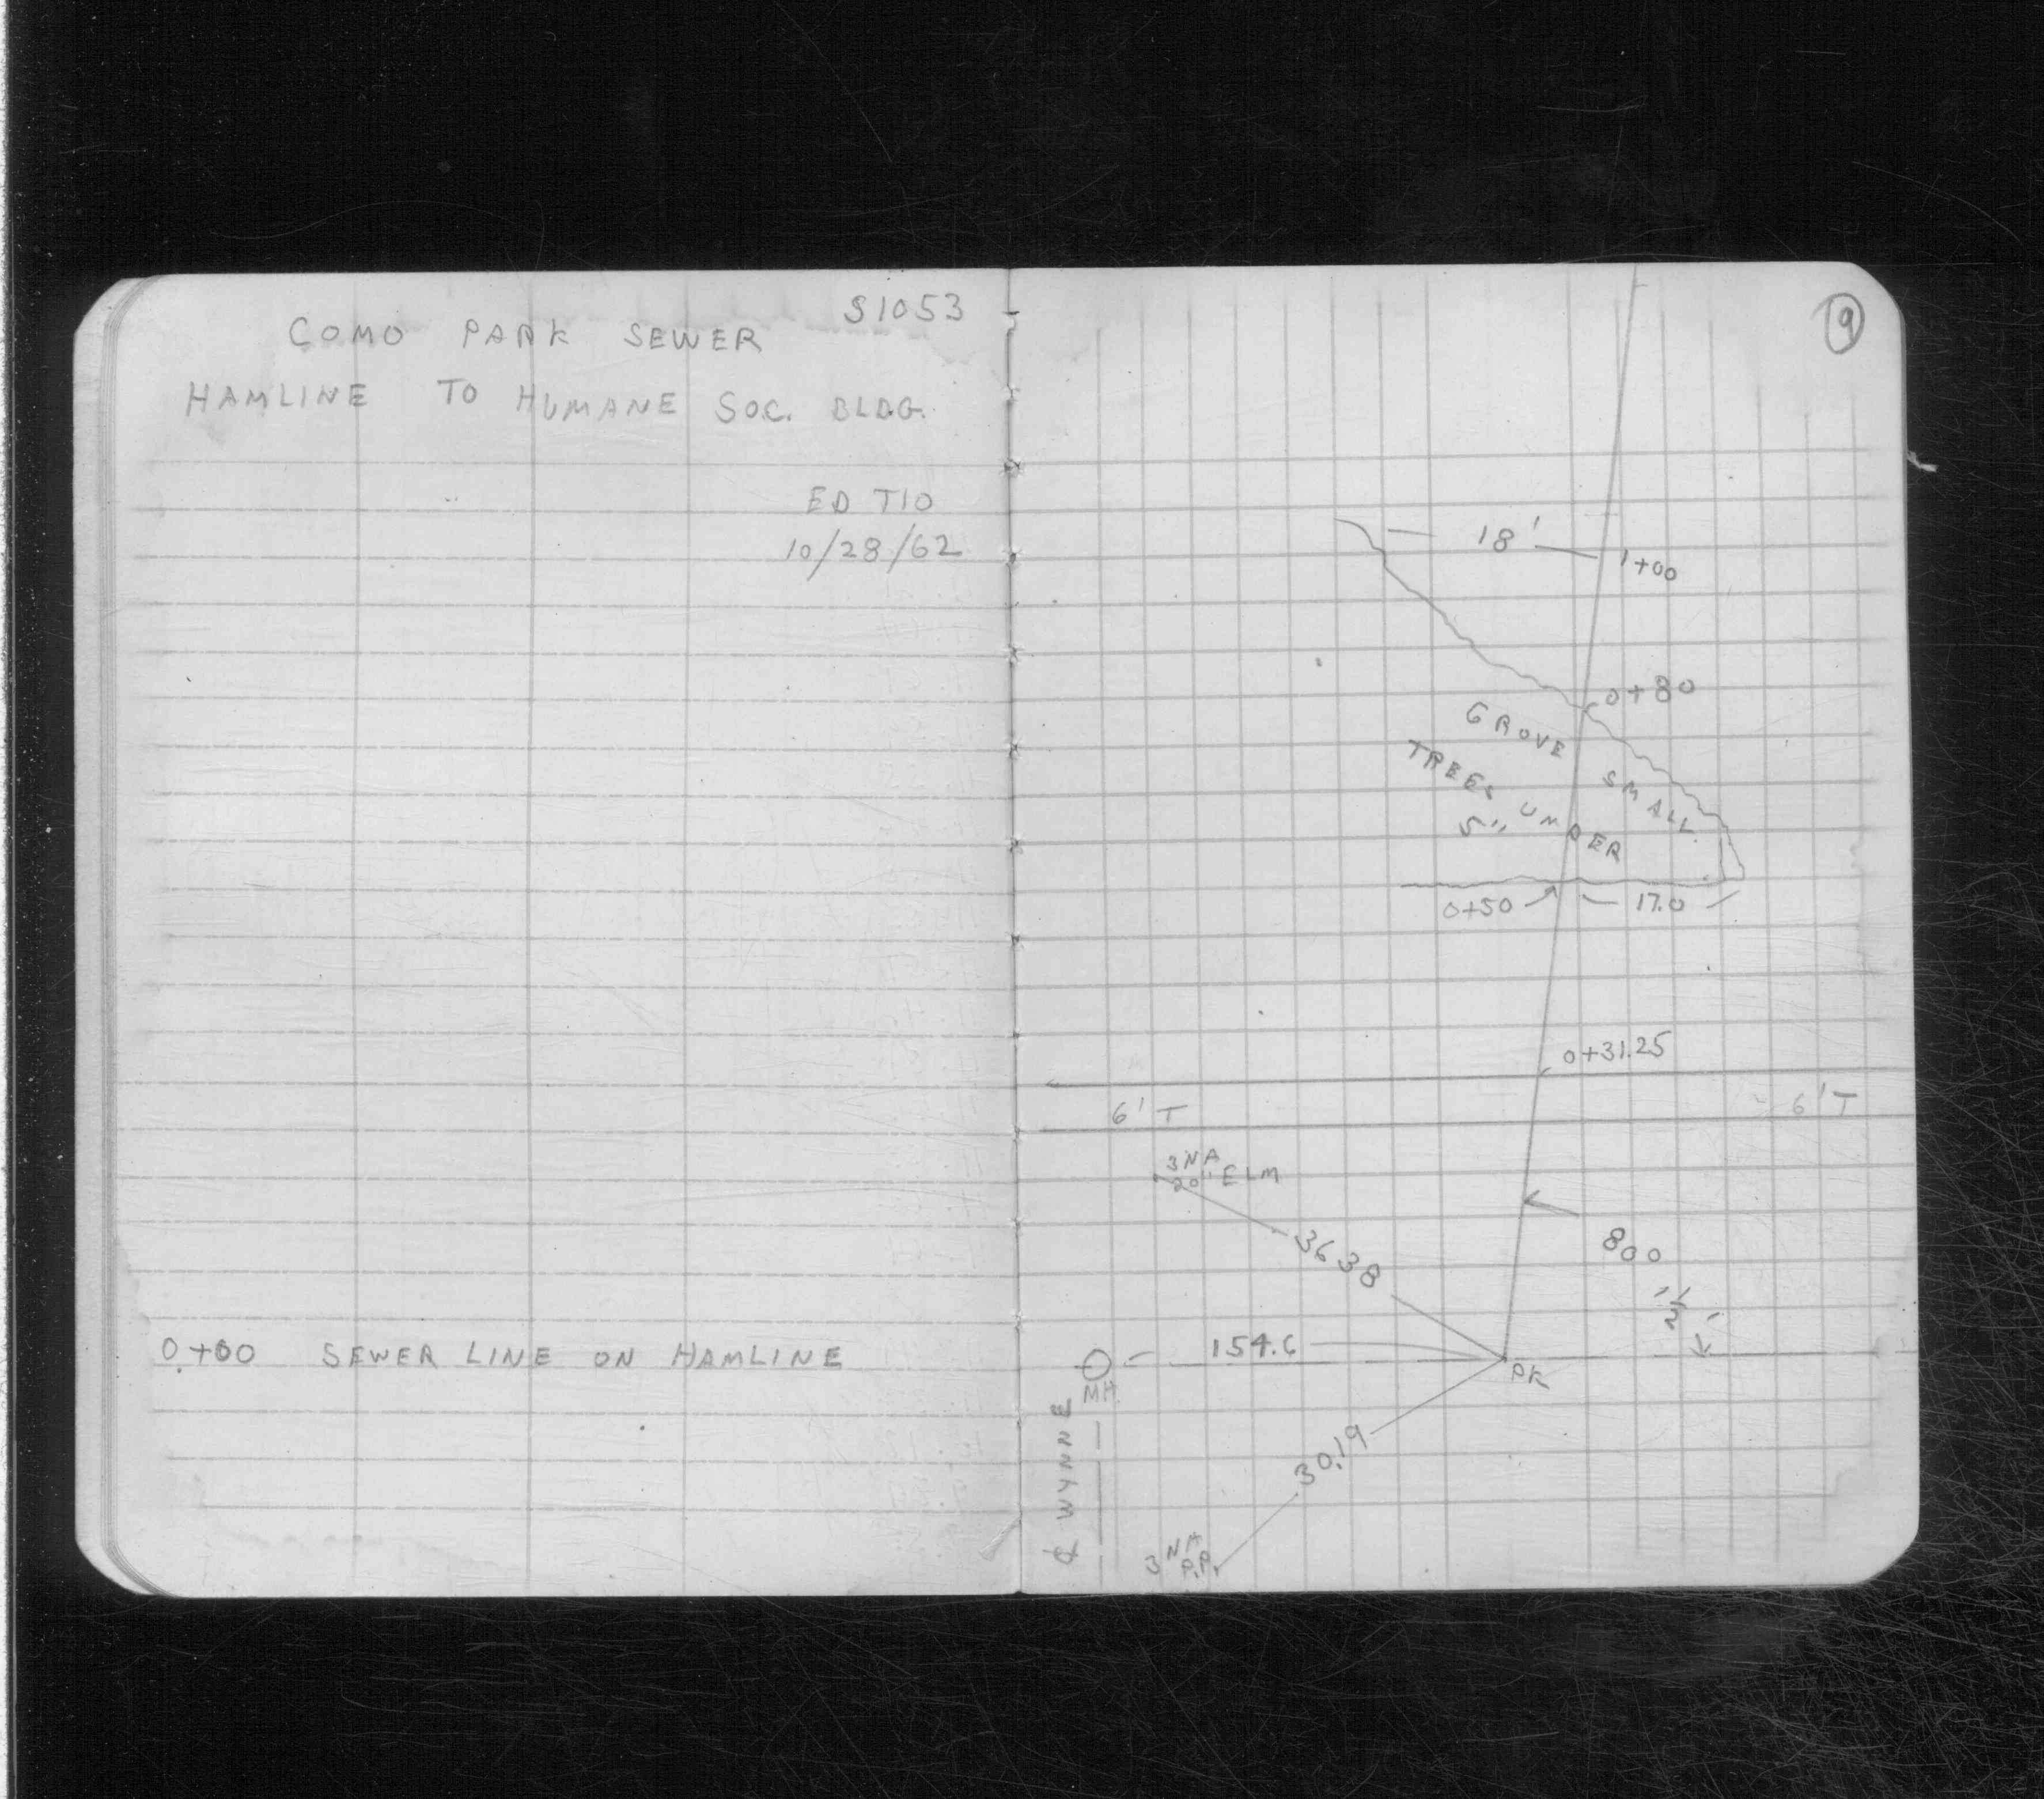 S1053
COMO PARK SEWER
HAMLINE TO HUMANE SOC. BLDG.
ED T10
10/28/62
0+00 SEWER LINE ON HAMLINE
9
18'
1+00
0+80
GROVE SMALL
TREES UNDER
5"
0+50
17.0
0+31.25
6' T
6' T
3NA
20" ELM
36.38
80°
154.6
MH
PK
℄ WYNNE
30.19
3NA
P.P.